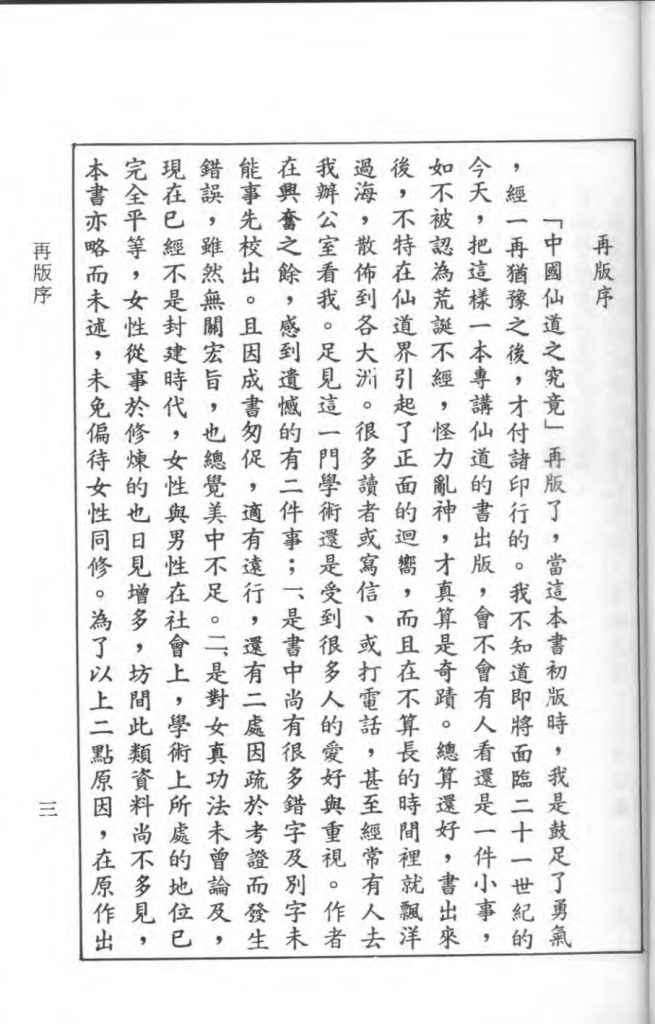 再版序
「中國仙道之究竟」再版了，當這本書初版時，我是鼓足了勇氣
，經一再猶豫之後，才付諸印行的。我不知道即將面臨二十一世紀的
今天，把這樣一本專講仙道的書出版，會不會有人看還是一件小事，
如不被認為荒誕不經，怪力亂神，才真算是奇蹟。總算還好，書出來
後，不特在仙道界引起了正面的迴嚮，而且在不算長的時間裡就飄洋
過海，散佈到各大洲。很多讀者或寫信、或打電話，甚至經常有人去
我辦公室看我。足見這一門學術還是受到很多人的愛好與重視。作者
在興奮之餘，感到遺憾的有二件事；一、是書中尚有很多錯字及別字未
能事先校出。且因成書匆促，適有遠行，還有二處因疏於考證而發生
錯誤，雖然無關宏旨，也總覺美中不足。二、是對女真功法未曾論及，
現在已經不是封建時代，女性與男性在社會上，學術上所處的地位已
完全平等，女性從事於修煉的也日見增多，坊間此類資料尚不多見，
本書亦略而未述，未免偏待女性同修。為了以上二點原因，在原作出
再版序
三